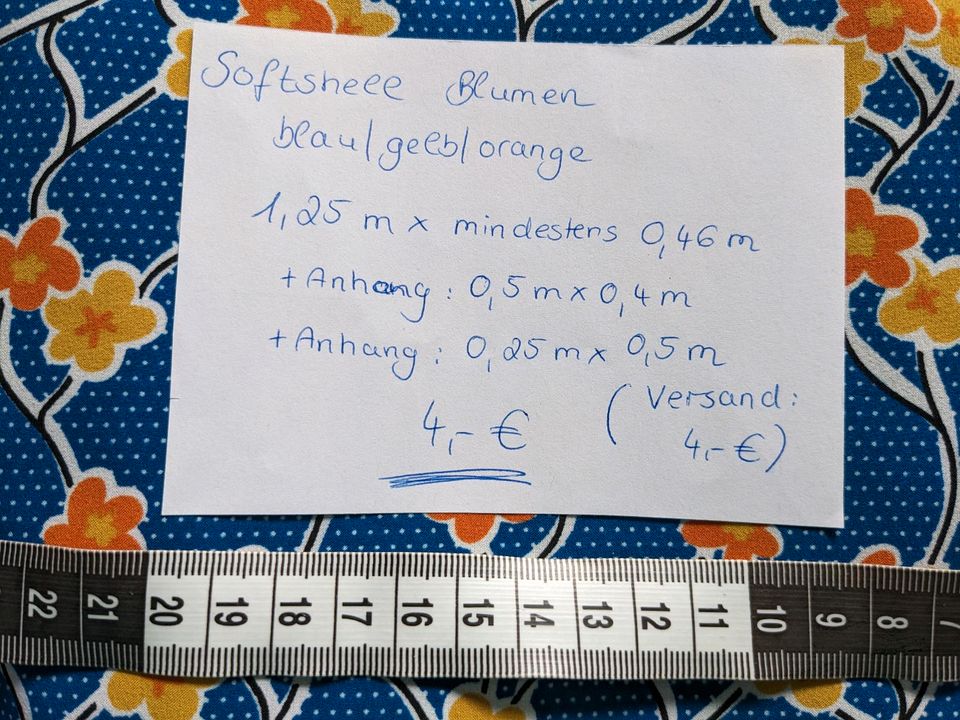 Softshell Blumen
blau/gelb/orange
1,25 m x mindestens 0,46 m
+ Anhang: 0,5 m x 0,4 m
+ Anhang: 0,25 m x 0,5 m
4,- € (Versand:
4,- €)
22 21 20 19 18 17 16 15 14 13 12 11 10 9 8 7